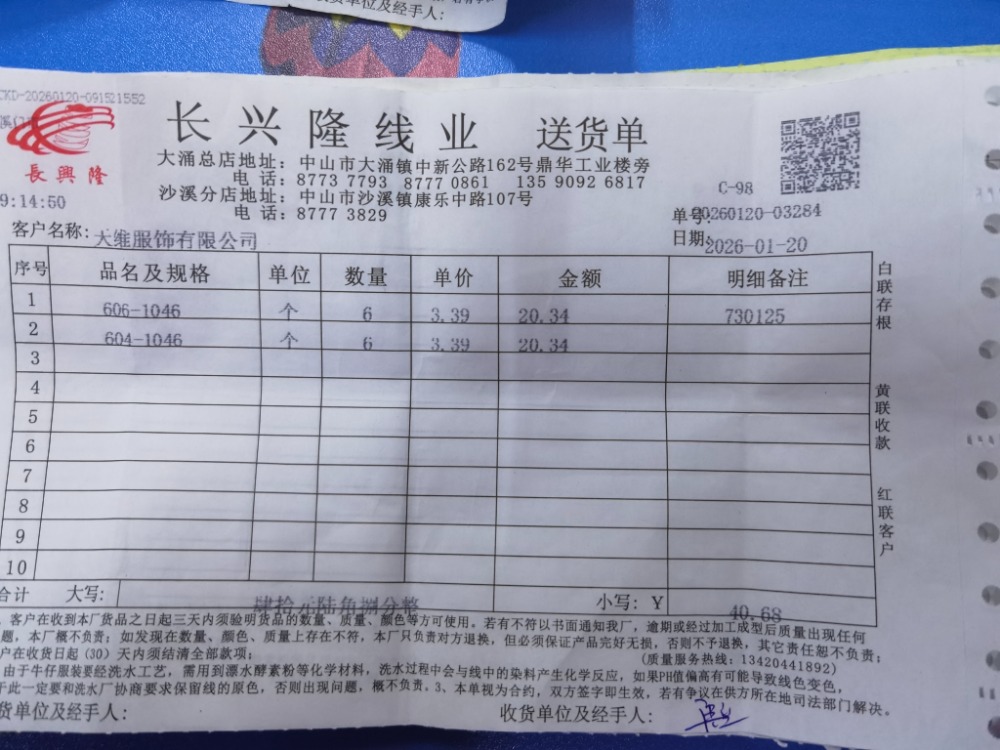 货单位及经手人:
CKD-20260120-091521552
長興隆
长兴隆线业 送货单
大涌总店地址: 中山市大涌镇中新公路162号鼎华工业楼旁
电 话: 8773 7793 8777 0861 135 9092 6817
沙溪分店地址: 中山市沙溪镇康乐中路107号
电 话: 8777 3829
C-98
9:14:50
单号:20260120-03284
客户名称: 大维服饰有限公司
日期:2026-01-20
序号 品名及规格 单位 数量 单价 金额 明细备注
1 606-1046 个 6 3.39 20.34 730125
2 604-1046 个 6 3.39 20.34
3
4
5
6
7
8
9
10
白联存根
黄联收款
红联客户
合计 大写: 肆拾元陆角捌分整 小写: Y 40.68
客户在收到本厂货品之日起三天内须验明货品的数量、质量、颜色等方可使用。若有不符以书面通知我厂，逾期或经过加工成型后质量出现任何
题，本厂概不负责；如发现在数量、颜色、质量上存在不符，本厂只负责对方退换，但必须保证产品完好无损，否则不予退换，其它责任恕不负责；
户在收货日起(30) 天内须结清全部款项； (质量服务热线: 13420441892)
由于牛仔服装要经洗水工艺，需用到漂水酵素粉等化学材料，洗水过程中会与线中的染料产生化学反应，如果PH值偏高有可能导致线色变色，
于此一定要和洗水厂协商要求保留线的原色，否则出现问题，概不负责。3、本单视为合约，双方签字即生效，若有争议在供方所在地司法部门解决。
货单位及经手人: 收货单位及经手人: